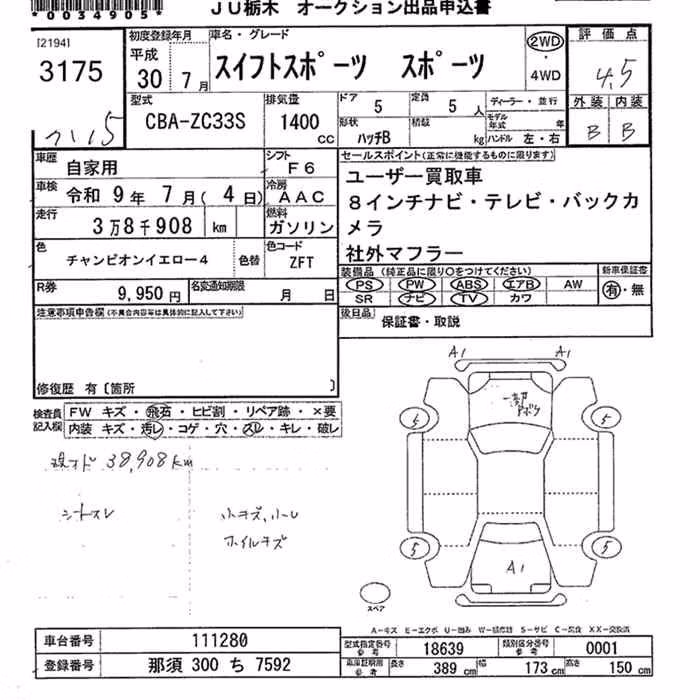 *0034905*
JU栃木 オークション出品申込書
[2194]
3175
初度登録年月
平成
30 7月
車名・グレード
スイフトスポーツ スポーツ
2WD
・
4WD
評価点
4.5
外装 内装
B B
型式
CBA-ZC33S
排気量
1400
cc
ドア 5
定員 5 人
ディーラー・並行
モデル年式 年
形状 ハッチB
積載 kg
ハンドル 左・右
車歴 自家用
シフト F6
車検 令和 9年 7月( 4日)
冷房 AAC
走行 3万8千908 km
燃料 ガソリン
色 チャンピオンイエロー4
色替
色コード ZFT
R券 9,950円
名変通知期限 月 日
セールスポイント(正常に機能するものに限ります)
ユーザー買取車
8インチナビ・テレビ・バックカ
メラ
社外マフラー
装備品 (純正品に限り○をつけてください)
PS PW ABS エアB AW
SR ナビ TV カワ
新車保証書
有・無
後日品 保証書・取説
注意事項申告欄(不具合内容等は具体的に記入して下さい)
修復歴 有〔箇所 〕
検査員記入欄
FW キズ・飛石・ヒビ割・リペア跡・×要
内装 キズ・汚レ・コゲ・穴・スレ・キレ・破レ
38,908km
シートスレ
小キズ、小凹
ホイルキズ
A1 A1
5 5
5 5
A1
スペア
A-キズ E-エクボ U-凹み W-補修跡 S-サビ C-腐食 XX-交換済
車台番号 111280
登録番号 那須 300 ち 7592
型式指定番号 参考 18639
類別区分番号 参考 0001
車庫証明用 参考 長さ 389 cm 幅 173 cm 高さ 150 cm